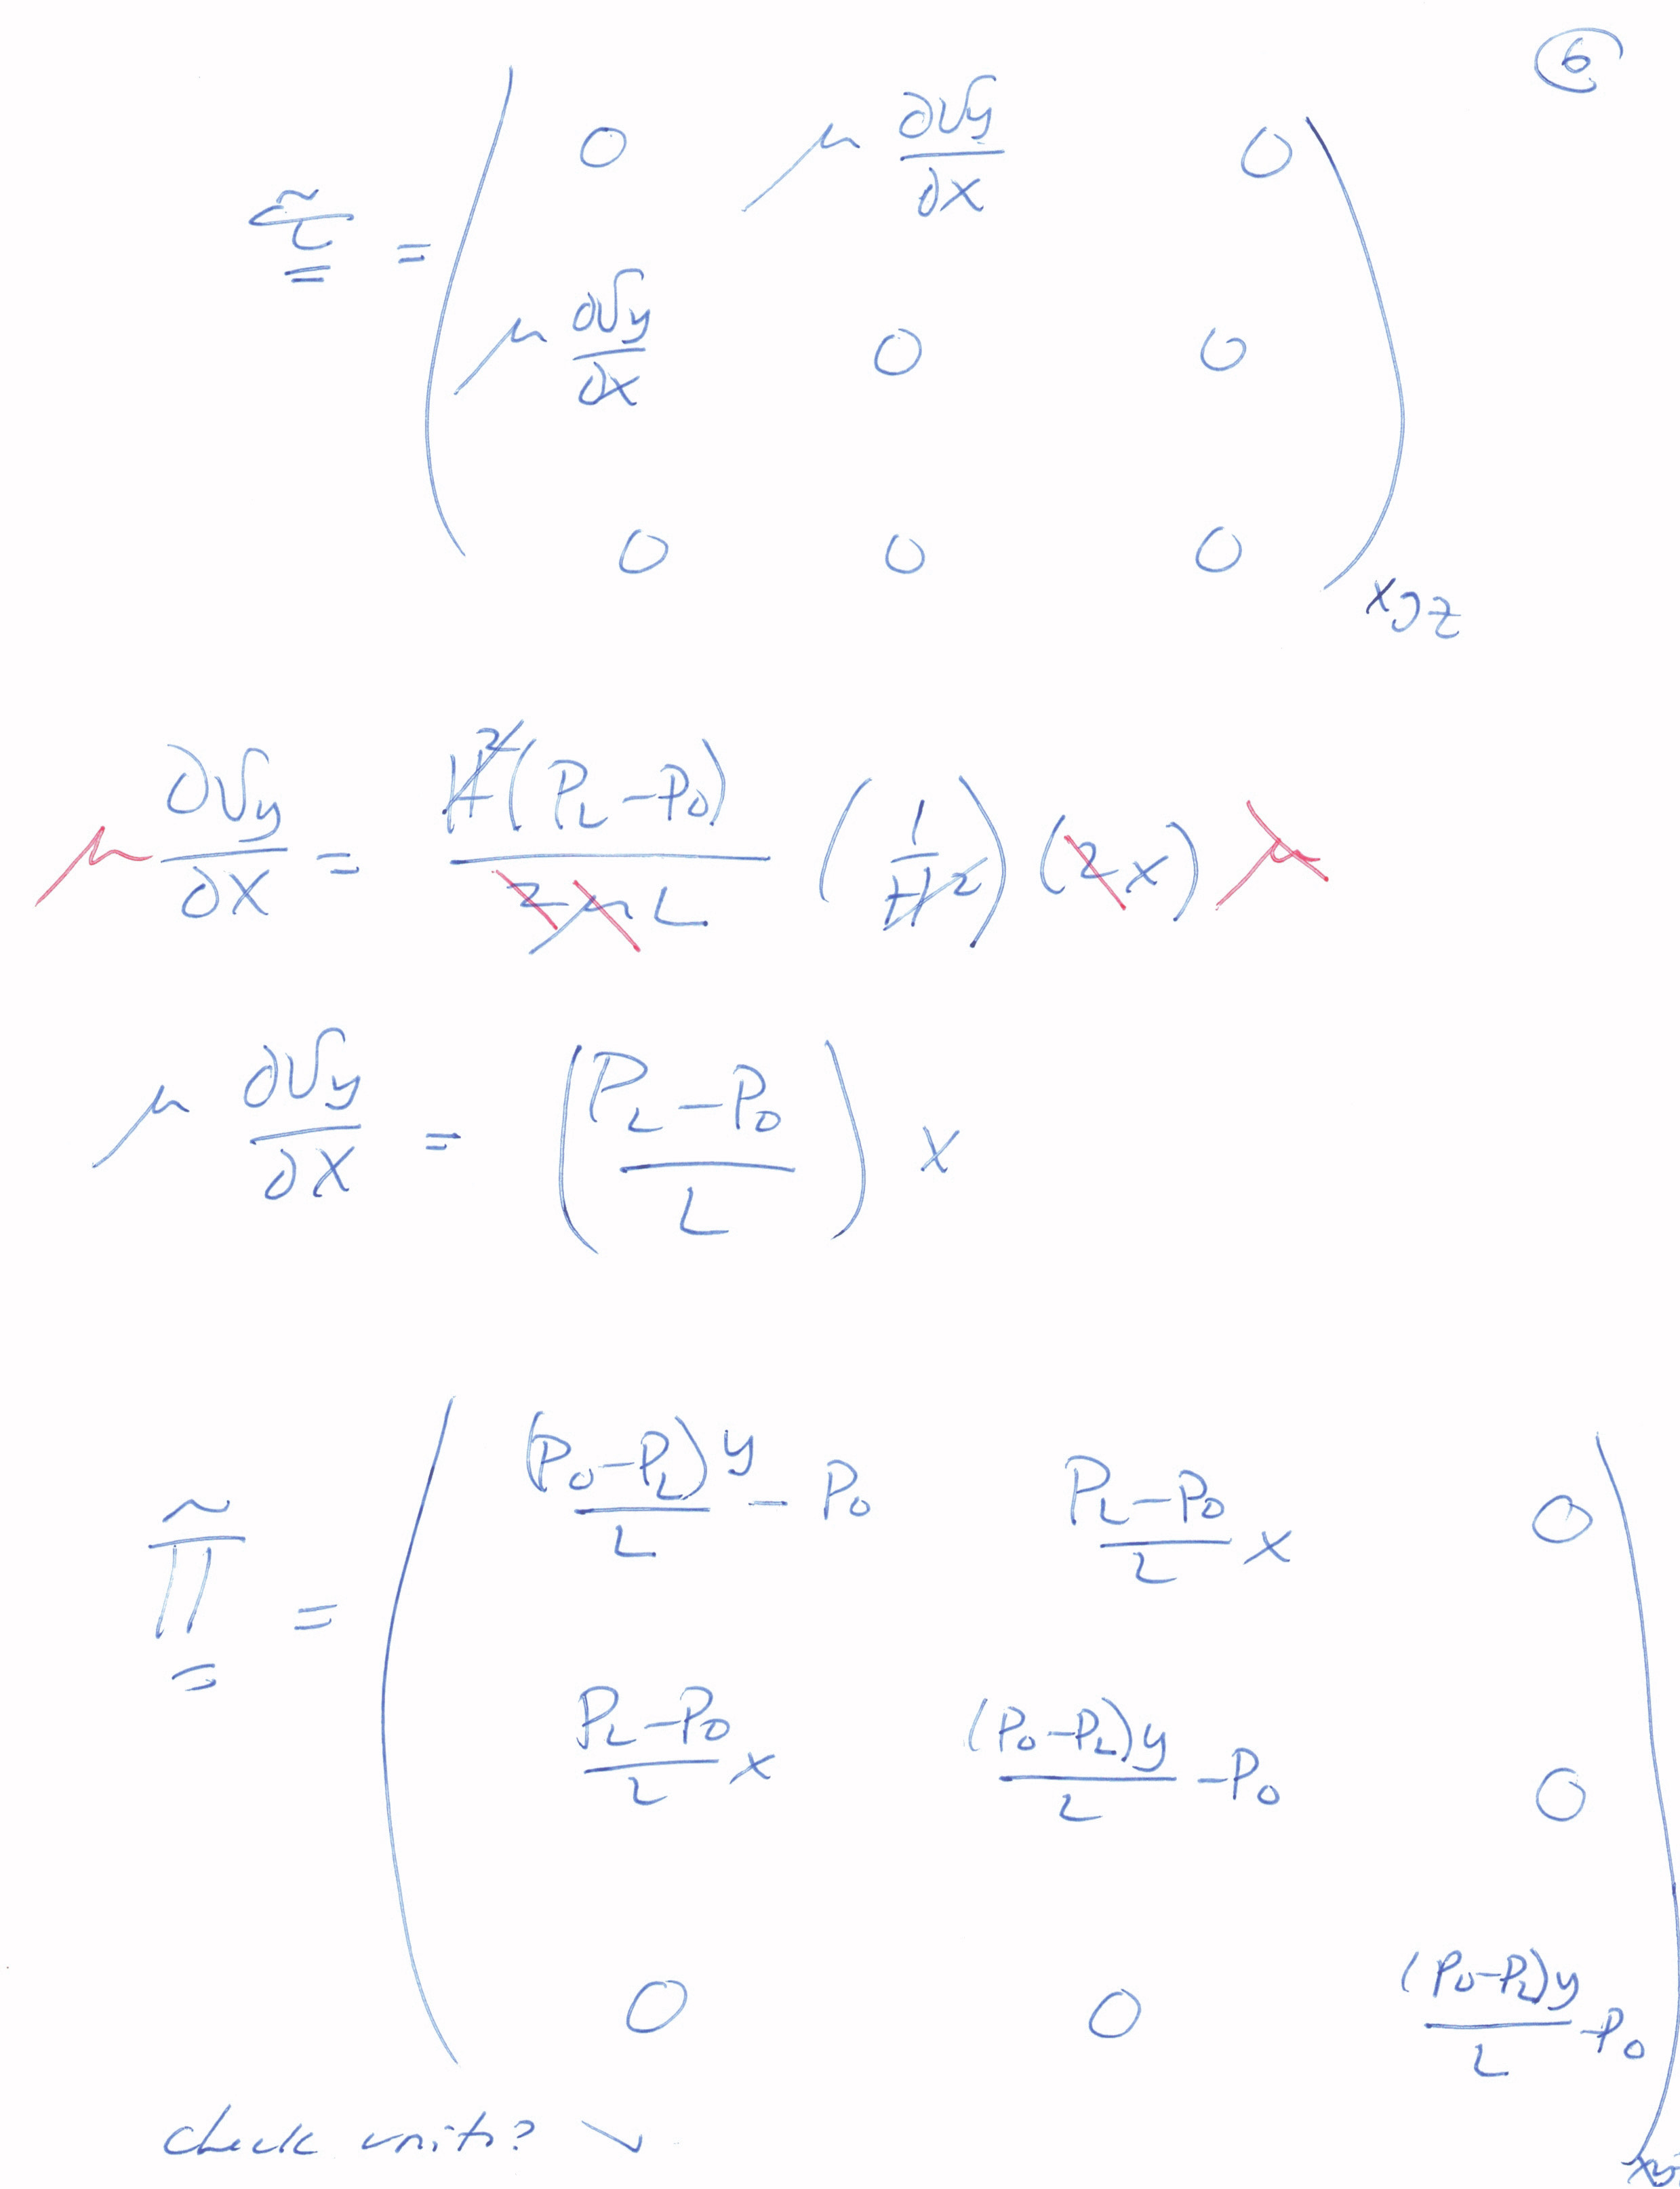 ⑥
τ̃ = ( 0 μ ∂v_y/∂x 0
μ ∂v_y/∂x 0 0
0 0 0 )xyz
μ ∂v_y/∂x = H²(P_L − P_0)/(2μL) (1/H²) (2x) μ
μ ∂v_y/∂x = ((P_L − P_0)/L) x
Π̃ = ( (P_0 − P_L)y/L − P_0 (P_L − P_0)/L x 0
(P_L − P_0)/L x (P_0 − P_L)y/L − P_0 0
0 0 (P_0 − P_L)y/L − P_0 )
check units? ✓